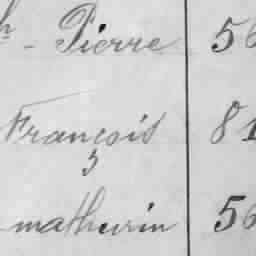 h - Pierre 56
François 81
mathurin 56